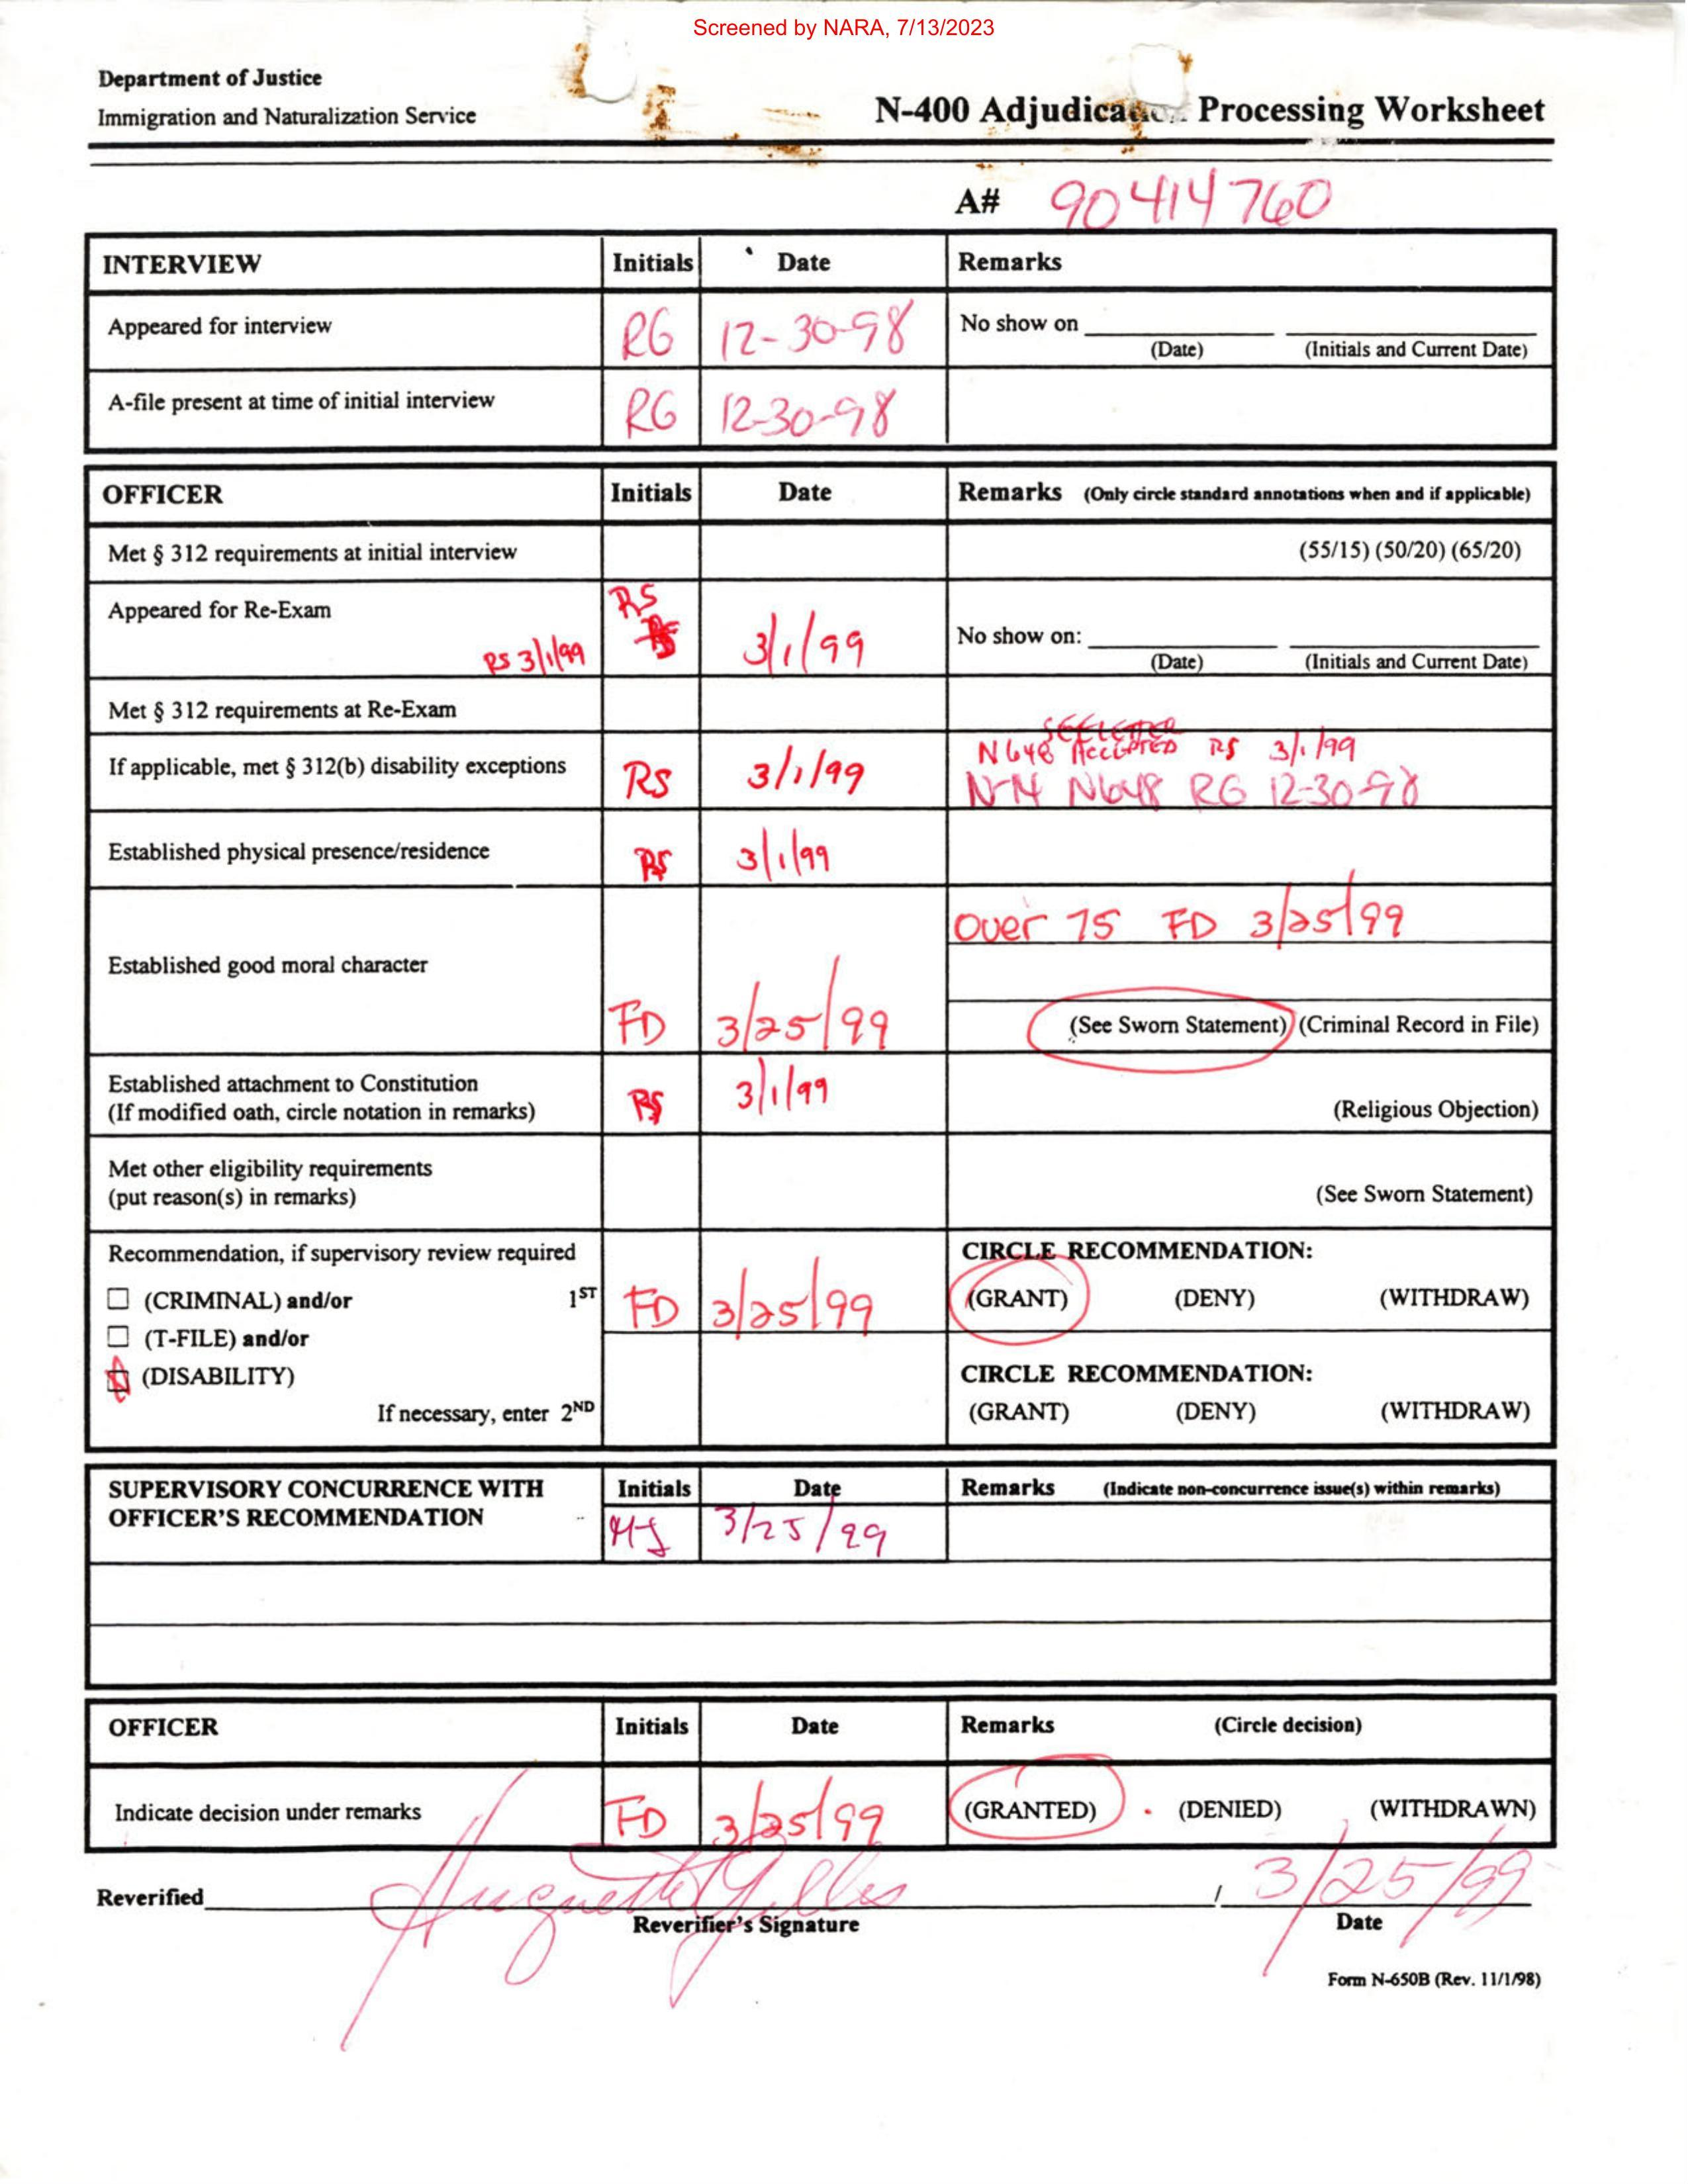 Screened by NARA, 7/13/2023
Department of Justice
Immigration and Naturalization Service
N-400 Adjudication Processing Worksheet
A# 90414760
INTERVIEW Initials Date Remarks
Appeared for interview RG 12-30-98 No show on
(Date) (Initials and Current Date)
A-file present at time of initial interview RG 12-30-98
OFFICER Initials Date Remarks (Only circle standard annotations when and if applicable)
Met § 312 requirements at initial interview (55/15) (50/20) (65/20)
Appeared for Re-Exam RS
RS 3/1/99 RS 3/1/99 No show on:
(Date) (Initials and Current Date)
Met § 312 requirements at Re-Exam
N648 ACCEPTED RS 3/1/99
If applicable, met § 312(b) disability exceptions RS 3/1/99
N-14 N648 RG 12-30-98
Established physical presence/residence RS 3/1/99
Over 75 FD 3/25/99
Established good moral character
FD 3/25/99 (See Sworn Statement) (Criminal Record in File)
Established attachment to Constitution
(If modified oath, circle notation in remarks) RS 3/1/99 (Religious Objection)
Met other eligibility requirements
(put reason(s) in remarks) (See Sworn Statement)
Recommendation, if supervisory review required CIRCLE RECOMMENDATION:
(CRIMINAL) and/or 1ST FD 3/25/99 (GRANT) (DENY) (WITHDRAW)
(T-FILE) and/or
(DISABILITY) CIRCLE RECOMMENDATION:
If necessary, enter 2ND (GRANT) (DENY) (WITHDRAW)
SUPERVISORY CONCURRENCE WITH Initials Date Remarks (Indicate non-concurrence issue(s) within remarks)
OFFICER'S RECOMMENDATION 3/25/99
OFFICER Initials Date Remarks (Circle decision)
Indicate decision under remarks FD 3/25/99 (GRANTED) (DENIED) (WITHDRAWN)
Reverified Huguette / 3/25/99
Reverifier's Signature Date
Form N-650B (Rev. 11/1/98)